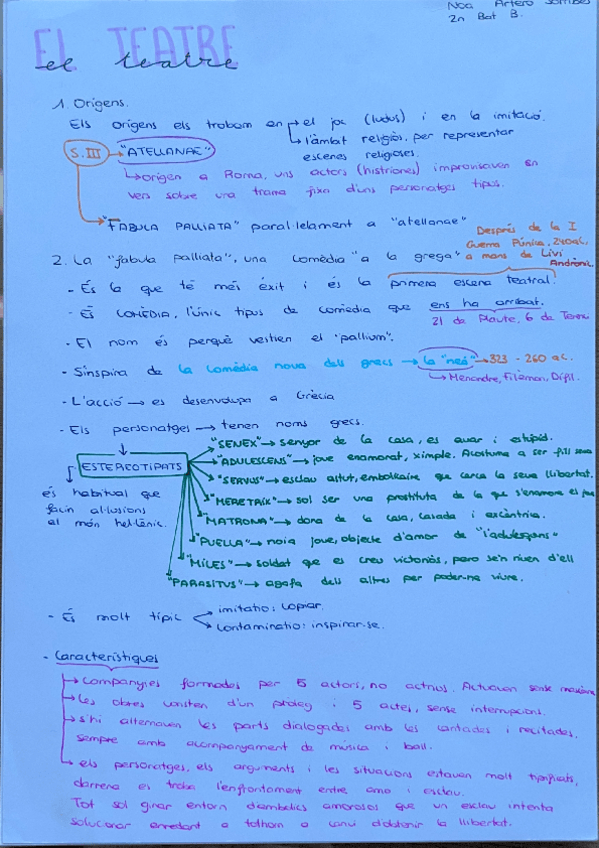 Noa Artero
2n Bat B.
EL TEATRE
el teatre
1. Orígens.
Els orígens els trobam en → el joc (ludus) i en la imitació.
↳ l'àmbit religiós, per representar
escenes religioses.
S.III → "ATELLANAE"
↳ origen a Roma, uns actors (histriones) improvisaven en
vers sobre una trama fixa d'uns personatges tipus.
"FABULA PALLIATA" paral·lelament a "atellanae"
Després de la I
Guerra Púnica, 240aC.
a mans de Livi
Andrònic.
2. La "fabula palliata", una comèdia "a la grega"
- És la que té més èxit i és la primera escena teatral.
- És COMÈDIA, l'únic tipus de comèdia que ens ha arribat.
21 de Plaute, 6 de Terenci
- El nom és perquè vestien el "pallium".
- S'inspira de la comèdia nova dels grecs → la "neá" → 323 - 260 aC.
↳ Menandre, Filèmon, Dífil.
- L'acció → es desenvolupa a Grècia
- Els personatges → tenen noms grecs.
ESTEREOTIPATS
és habitual que
facin al·lusions
al món hel·lènic.
"SENEX" → senyor de la casa, es avar i estúpid.
"ADULESCENS" → jove enamorat, ximple. Acostuma a ser fill seva
"SERVUS" → esclau astut, embolicaire que cerca la seva llibertat.
"MERETRIX" → sol ser una prostituta de la que s'enamora el
"MATRONA" → dona de la casa, casada i excèntrica.
"PUELLA" → noia jove, objecte d'amor de "l'adulesçens"
"MILES" → soldat que es creu victoriós, però se'n riuen d'ell
"PARASITUS" → agafa dels altres per poder-ne viure.
- És molt típic
imitatio: copiar.
contaminatio: inspirar-se.
- Característiques
→ Companyies formades per 5 actors, no actrius. Actuaven sense
→ Les obres consten d'un pròleg i 5 actes, sense interrupcions.
→ S'hi alternaven les parts dialogades amb les cantades i recitades,
sempre amb acompanyament de música i ball.
→ els personatges, els arguments i les situacions estaven molt tipificats,
darrera es troba l'enfrontament entre amo i esclau.
Tot sol girar entorn d'embolics amorosos que un esclau intenta
solucionar enredant a tothom a canvi d'obtenir la llibertat.